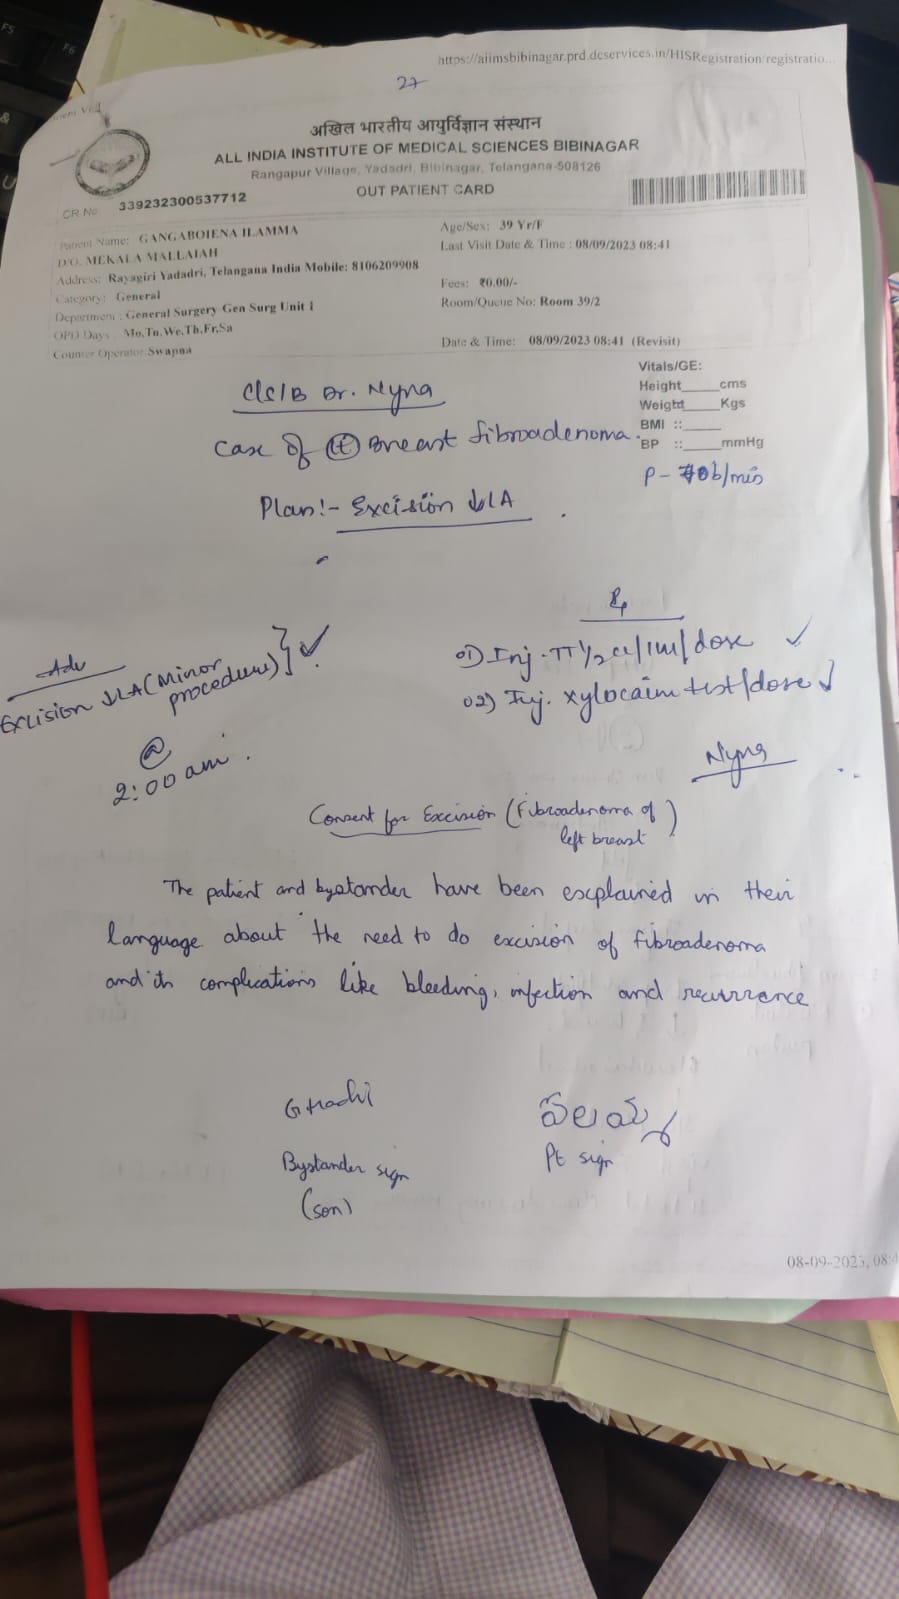 https://aiimsbibinagar.prd.dcservices.in/HISRegistration/registratio...
27
अखिल भारतीय आयुर्विज्ञान संस्थान
ALL INDIA INSTITUTE OF MEDICAL SCIENCES BIBINAGAR
Rangapur Village, Yadadri, Bibinagar, Telangana-508126
OUT PATIENT CARD
CR No 339232300537712
Patient Name: GANGABOIENA ILAMMA
Age/Sex: 39 Yr/F
D/O. MEKALA MALLAIAH
Last Visit Date & Time : 08/09/2023 08:41
Address: Rayagiri Yadadri, Telangana India Mobile: 8106209908
Category: General
Fees: ₹0.00/-
Department : General Surgery Gen Surg Unit 1
Room/Queue No: Room 39/2
OPD Days Mo,Tu,We,Th,Fr,Sa
Counter Operator: Swapna
Date & Time: 08/09/2023 08:41 (Revisit)
Vitals/GE:
Height____cms
Weight____Kgs
BMI ::____
BP ::____mmHg
C/S/B Dr. Nyna
Case of (Lt) Breast fibroadenoma.
Plan:- Excision ↓LA
Rx
01) Inj. TT 1/2 cc/IM/dose ✓
02) Inj. Xylocaine test/dose
Nyna
Adv
Excision ↓LA (Minor procedure) } ✓
@
2:00 am.
Consent for Excision (Fibroadenoma of left breast)
The patient and bystander have been explained in their
language about the need to do excision of fibroadenoma
and its complications like bleeding, infection and recurrence
Bystander sign
(son)
Pt sign
08-09-2023, 08:4